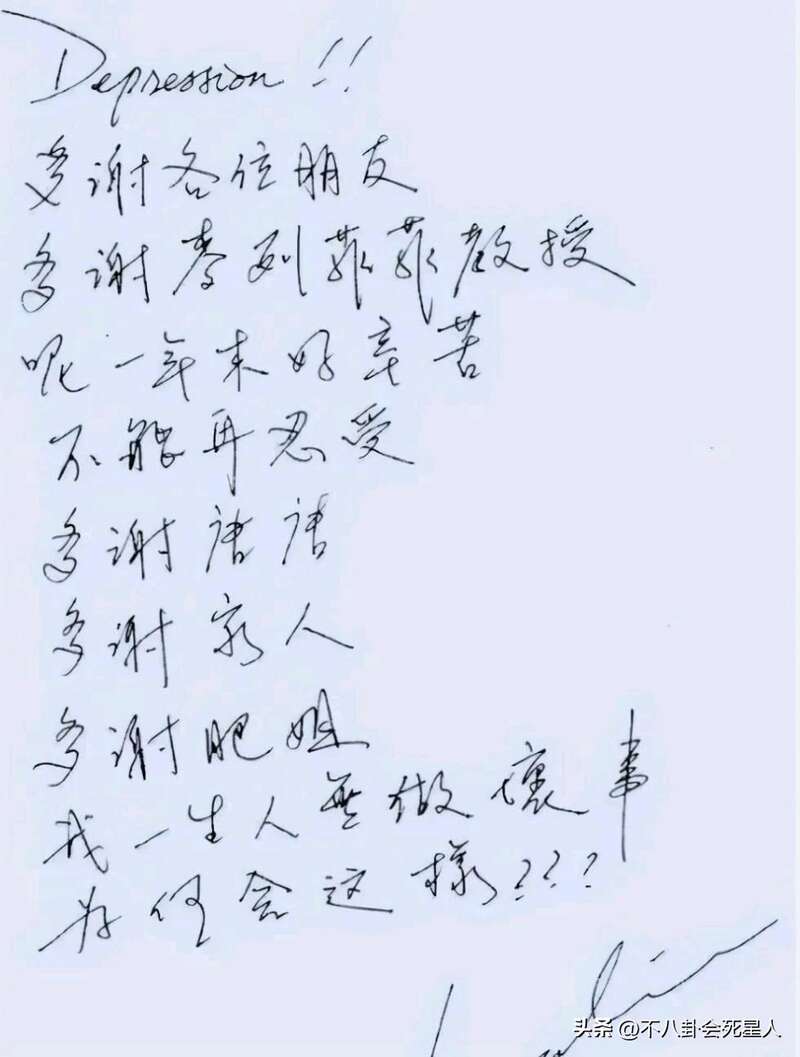 Depression!!
多谢各位朋友
多谢麦列菲菲教授
呢一年来好辛苦
不能再忍受
多谢唐唐
多谢家人
多谢肥姐
我一生人無做壞事
为何会这樣???
头条 @不八卦会死星人